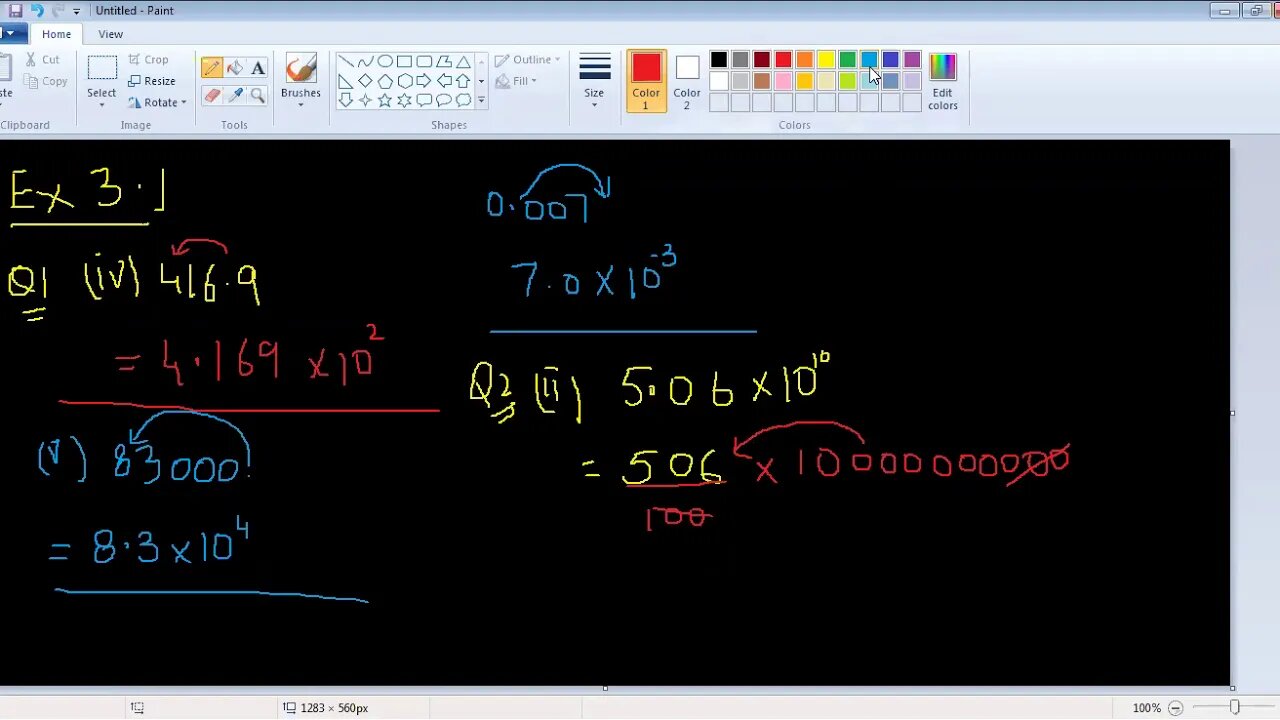 Untitled - Paint
Home View
Cut
Copy
ste
Clipboard
Select
Crop
Resize
Rotate
Image
Tools
Brushes
Shapes
Outline
Fill
Size
Color 1
Color 2
Edit colors
Colors
Ex 3.1
Q1 (iv) 416.9
= 4.169 × 10²
(v) 83000.
= 8.3 × 10⁴
0.007
7.0 × 10⁻³
Q2 (ii) 5.06 × 10¹⁰
= 506 × 10000000000
100
1283 × 560px
100%